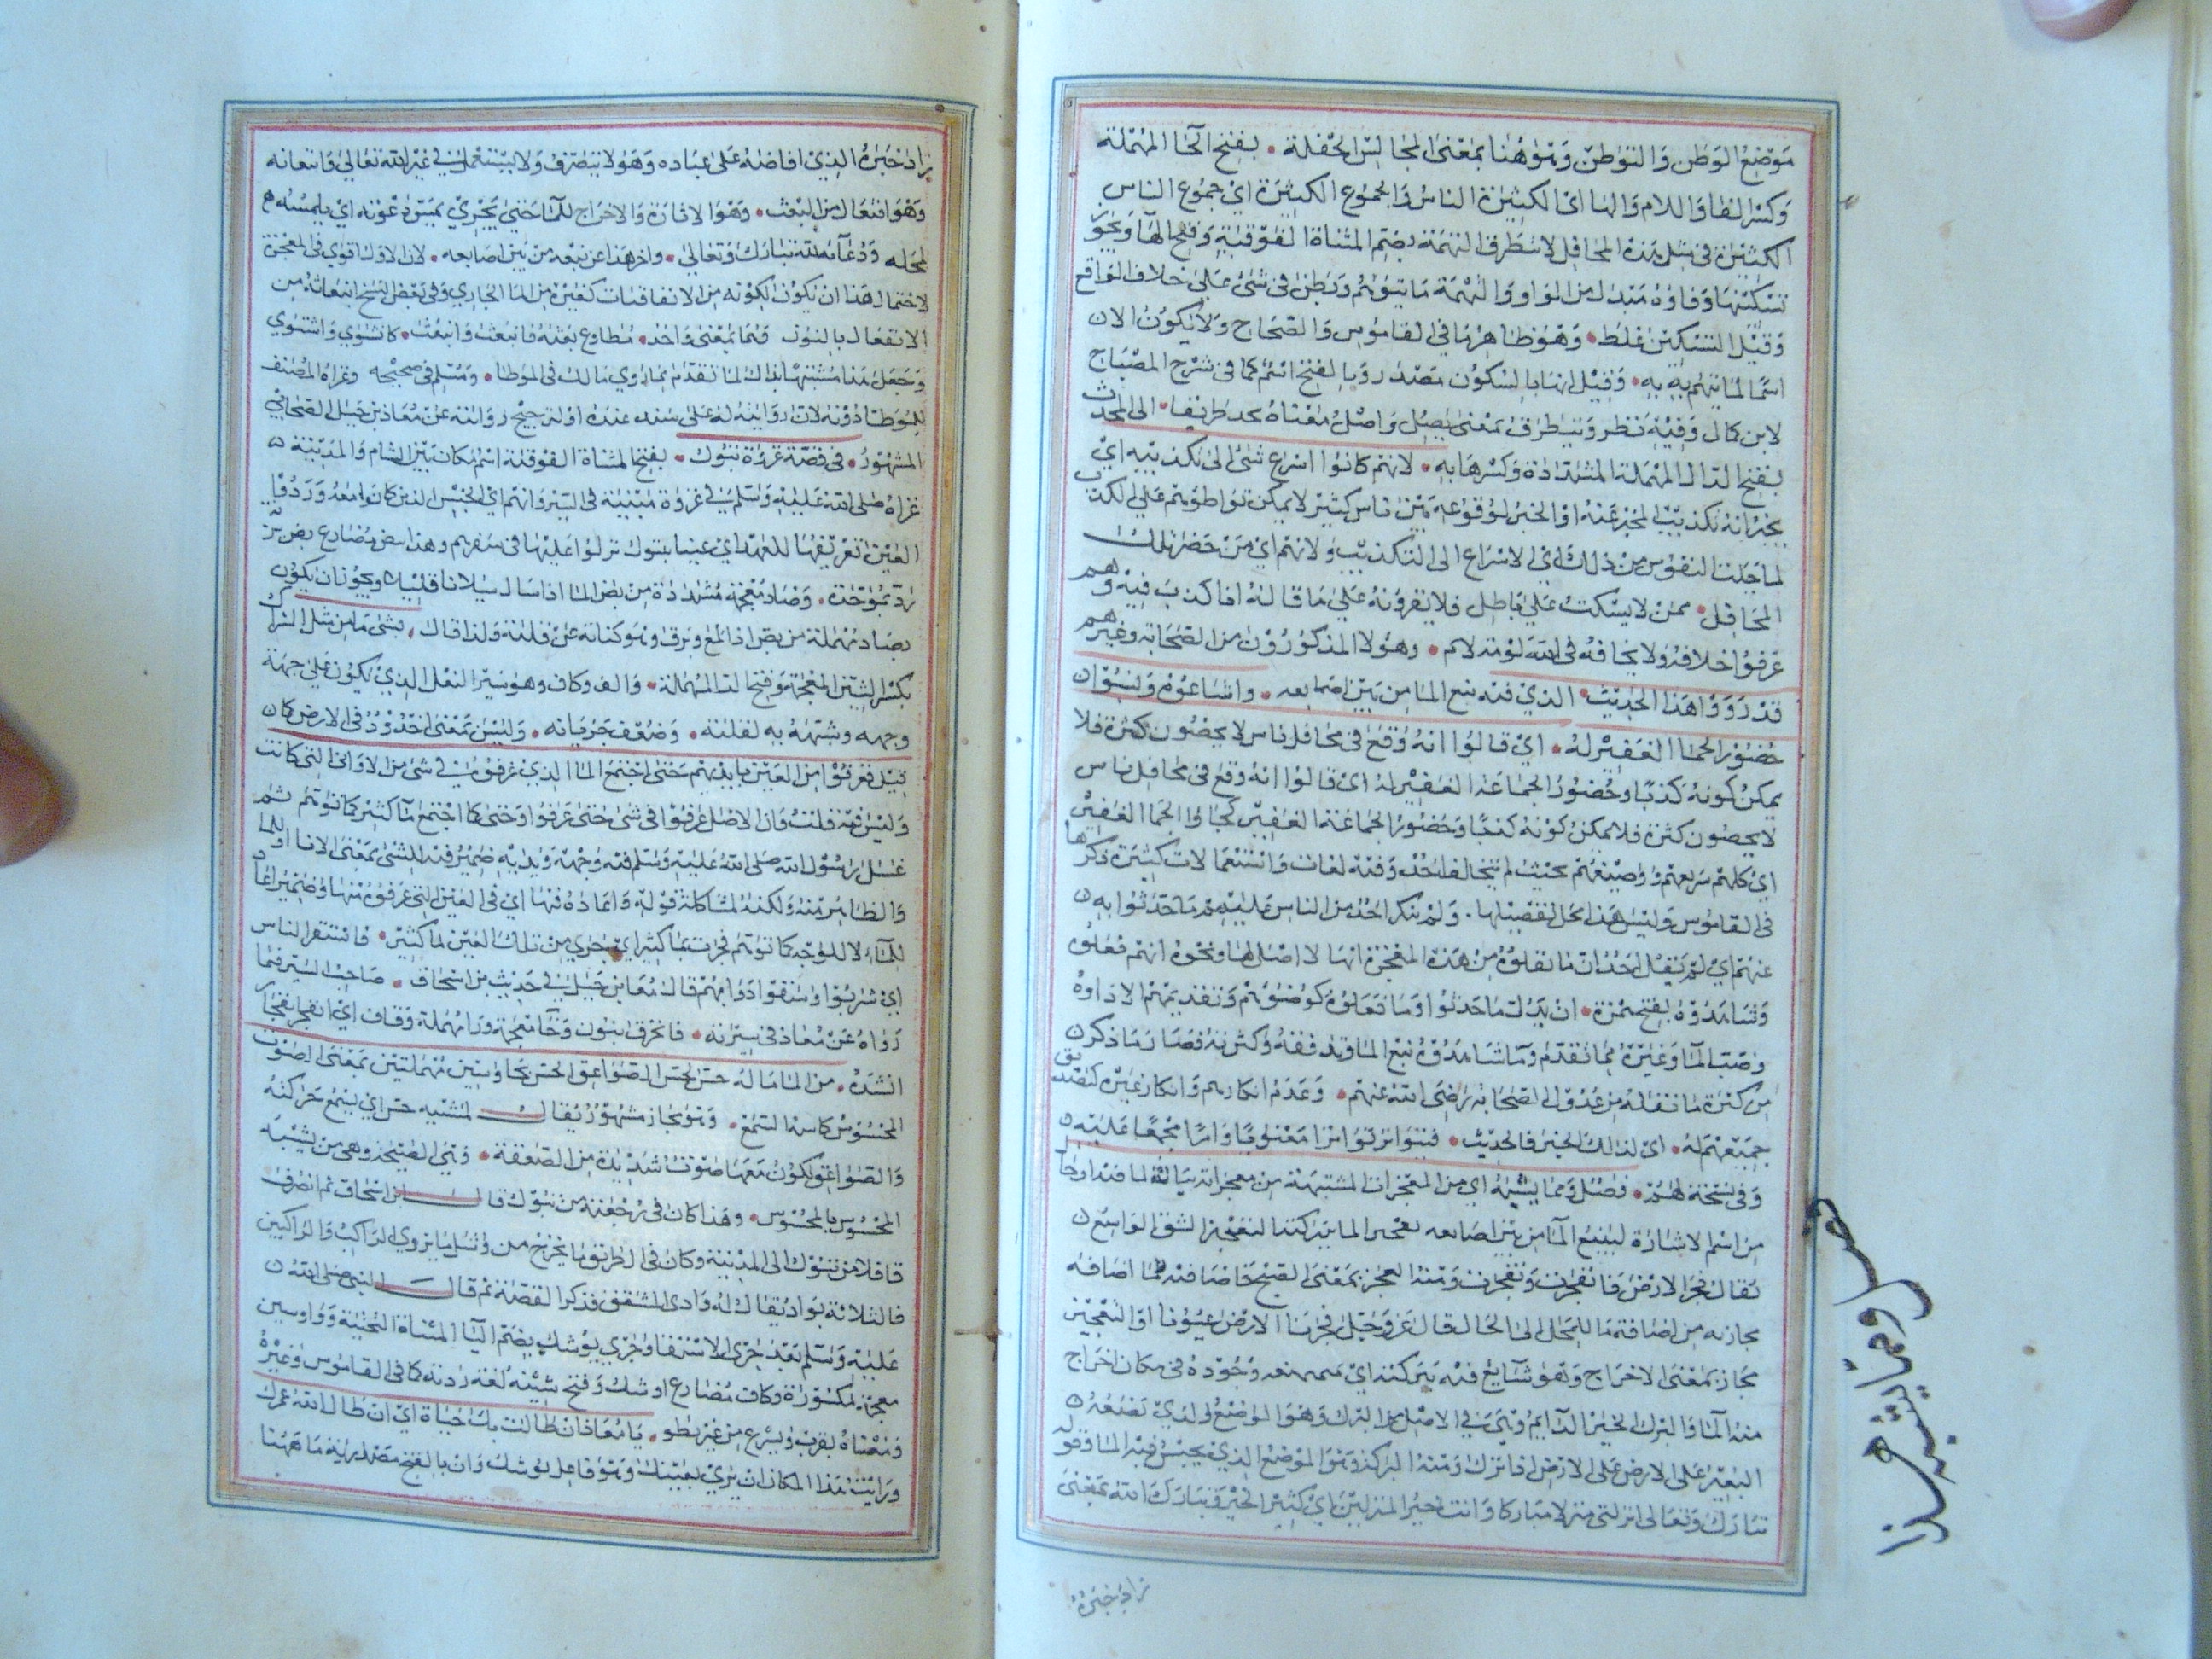 موضع الوطن والتوطن وهو هنا بمعنى المجالس الحفلة . بفتح الحا المهملة
وكسر الفا واللام والها اى الكثيرة الناس والجموع الكثيرة اي جموع الناس
الكثيرة في مثل هذه المحافل لا تتطرق التهمة بضم المثناة الفوقية وفتح الها ويجوز
تسكينها وفاؤه مبدلة من الواو والتهمة ما يتوهم ويظن فى شئ على خلاف الواقع
وقيل التسكين غلط . وهو ظاهر ما في القاموس والصحاح ولا يكون الان
اسما لما يتهم به . وقيل انها بالسكون مصدر وبالفتح اسم كما فى شرح المصباح
لابن كمال وفيه نظر وتتطرق بمعنى يصل واصل معناه يجد طريقا . الى المحدث
بفتح الدال المهملة المشددة وكسرها به . لانهم كانوا اسرع شئ الى تكذيبه اي
بخبر انه تكذيب المخبر عنه او الخبر لوقوعه بين ناس كثير لا يمكن تواطؤهم على الكذب
لما جبلت النفوس من ذلك اي الاسراع الى التكذيب ولانهم اي من حضر تلك
المحافل . ممن لا يسكت على باطل فلا يقرونه على ما قاله اذا كذب فيه وهم
عرفوا خلافه ولا يخافه فى الله لومة لائم . وهولا المذكورون من الصحابة وغيرهم
قد رووا هذا الحديث الذي فيه نبع الما من بين اصابعه . واشاعوه ونسبوا
حضور الجما الغفير له . اي قالوا انه وقع فى محافل ناس لا يحصون كثرة فلا
يمكن كونه كذبا وحضور الجماعة الغفير له اى قالوا انه وقع فى محافل ناس
لا يحصون كثرة فلا يمكن كونه كذبا وحضور الجماعة الغفير كجاوا الجما الغفير
اي كلهم شريعهم ووضيعهم بحيث لم يتخالف احد وفيه لغات واستعمالات كثيرة ذكرها
فى القاموس وليس هذا محل تفصيلها . ولم ينكر احد من الناس عليهم ما حدثوا به
عنهم اي لم يقل احد ان ما نقلوه من هذه المعجزة انها لا اصل لها ونحوه انهم فعلوه
وشاهدوه بفتح همزة . ان يدل ما حدثوا وما فعلوه كوضوئهم وتقديمهم الاداوة
وصب الما وغيره مما تقدم وما شاهدوه نبع الما وتدفقه وكثرته فصار ما ذكر
من كثرة ما نقله من عدول الصحابة رضي الله عنهم . وعدم انكارهم وانكار غيرهم كتصديق
جميعهم له . اى لذلك الخبر فالحديث . فيتواتر تواترا معنويا وامرا مجمعا عليه
وفى نسخة لهم . فصل ومما يشبه اي من المعجزات المشبهة من معجزاته بيانه لما فيه اوحا
من اسم الاشارة لنبع الما من بين اصابعه تفجير الما ببركته التفجير الشق الواسع
يقال فجر الارض فانفجرت وتفجرت ومنه الفجر بمعنى الصبح فاضافته للما اضافة
مجازية من اضافة ما للمحل الى الحال قال عز وجل وفجرنا الارض عيونا او التفجير
مجاز بمعنى الاخراج وهو شائع فيه ببركته اي وجوده فى مكان اخراج
منه الما والبرك الخير الدائم وهي في الاصل من البرك وهو الموضع الذي تضعه
البعير على الارض على الارض اذا برك ومنه البركة وهو الموضع الذي يحبس فيه الما وقوله
تبارك وتعالى انزلني منزلا مباركا وانت خير المنزلين اي كثير الخير وتبارك الله بمعنى
زاد خيره
فصل ومما يشبه هذا
زاد خيره الذي افاضه على عباده وهو لا يتصرف ولا يستعمل في غير الله تعالى وانبعاثه
وهو افتعال من البعث . وهو الاثارة والاخراج للما حتى يجري بمسه ودعوته اي بلمسه
لمحله ودعائه لله تبارك وتعالى . واخر هذا عن نبعه من بين اصابعه . لان الاول اقوي فى المعجزة
لاحتمال هذا ان يكون لكونه من الاتفاقيات كغيره من الما الجاري وفي بعض النسخ انبعاثه من
الانفعال بالنون وهما بمعنى واحد . مطاوع بعثه فانبعث وابتعث . كانشوي واشتوي
وجعل هذا مشبها بذاك لما تقدم بما روي مالك فى الموطا . ومسلم فى صحيحه وعزاه المصنف
للموطا دونه لان روايته له على سند عنده او لترجيح روايته عن معاذ بن جبل الصحابي
المشهور . في قصة غزوة تبوك . بفتح المثناة الفوقية اسم مكان بين الشام والمدينة
غزاه صلى الله عليه وسلم في غزوة مبينة فى السير وانهم اي الجيش الذين كانوا معه وردوا
العين تعريفها للعهد اي عينا بتبوك نزلوا عليها فى سفرهم وهذا تبض مضارع بض
بموحدة . وضاد معجمة مشددة من بض الما اذا سال سيلانا قليلا ويجوز ان يكون
بصاد مهملة من بص اذا لمع وبرق وهو كناية عن قلته ولذا قال . بشئ ما من مثل الشراك
بكسر الشين المعجمة وفتح الدا المهملة . والف وكاف وهو سير النعل الذي يكون على جهة
وجهه وشبهه به لقلته . وضعف جريانه . وليس بمعنى اخدود فى الارض كان
قيل فغرفوا من العين بايديهم حتى اجتمع الما الذي غرفوه في شئ من الاواني التى كانت
وليس فيه قلت وان الاصل غرفوا فى شئ حتى غرفوا وحتى كما اجتمع ما كثير كما توهم ثم
غسل رسول الله صلى الله عليه وسلم فيه وجهه ويديه ضمير فيه للشئ بمعنى الانا او للما
والظاهر منه ولكنه لمشاكلة قوله واعاده فيها اي فى العين التى غرفوه منها وضمير اعا
للماء لا للوجه كما توهم فجرت بماء كثير اي جري من تلك العين لما كثير . فاستقى الناس
اي شربوا وسقوا دوابهم قال معاذ بن جبل في حديث بن اسحاق . صاحب السير فيما
رواه عن معاذ فى سيرته . فانخرق بنون وخا معجمة ورا مهملة وقاف اي انفجر انفجا
الشده . من الما ما له حس كحس الصواعق الحس بحا وسين مهملتين بمعنى الصوت
المحسوس كاسة السمع . وهو مجاز مشهور يقال لمشيه حس اي يسمع حركته
والصواعق يكون معها صوت شديد من الصعقة . وهي الصيحة وهى من تشبيه
المحسوس بالمحسوس . وهذا كان في رجعته من تبوك قال ابن اسحاق ثم انصرف
قافلا من تبوك الى المدينة وكان فى الطريق ما يخرج من وشل ما يروي الراكب والراكبين
والثلاثة بواد يقال له وادى المشقق فذكر القصة ثم قال النبى صلى الله
عليه وسلم بعد جرى الاستقا وجرى يوشك بضم اليا المثناة التحتية وواو وسين
معجمة مكسورة وكاف مضارع اوشك وفتح شينه لغة ردية كما فى القاموس وغيره
ومعناه يقرب ويسرع من غير بطو . يا معاذ ان طالت بك حياة اي ان طال الله عمرك
ورايت هذا المكان ان يري بعينيك وهو فاعل يوشك وان بالفتح مصدرية ما ههنا